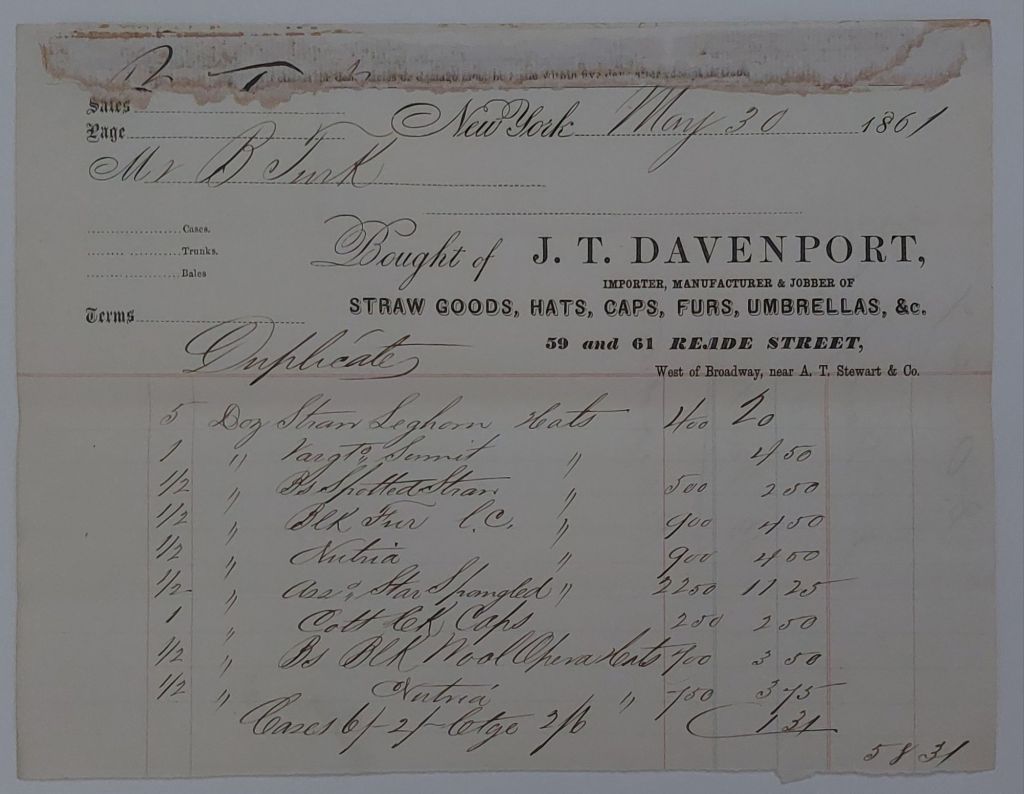 Sales
Page
New York May 30 1861
Mr B Turk
Cases.
Trunks.
Bales
Terms
Bought of J. T. DAVENPORT,
IMPORTER, MANUFACTURER & JOBBER OF
STRAW GOODS, HATS, CAPS, FURS, UMBRELLAS, &c.
59 and 61 READE STREET,
West of Broadway, near A. T. Stewart & Co.
Duplicate
5 Doz Straw Leghorn Hats 400 20
1 " Sennit " 4 50
1/2 " Bs Spotted Straw 500 2 50
1/2 " Blk Fur C.C. " 900 4 50
1/2 " Nutria " 900 4 50
1/2 " Star Spangled " 2250 11 25
1 " Cott Ck Caps 250 2 50
1/2 " Bs Blk Wool Opera Hats 700 3 50
1/2 " Nutria " 750 3 75
Cases 6/- 2/- Ctge 2/6 1 31
58 31